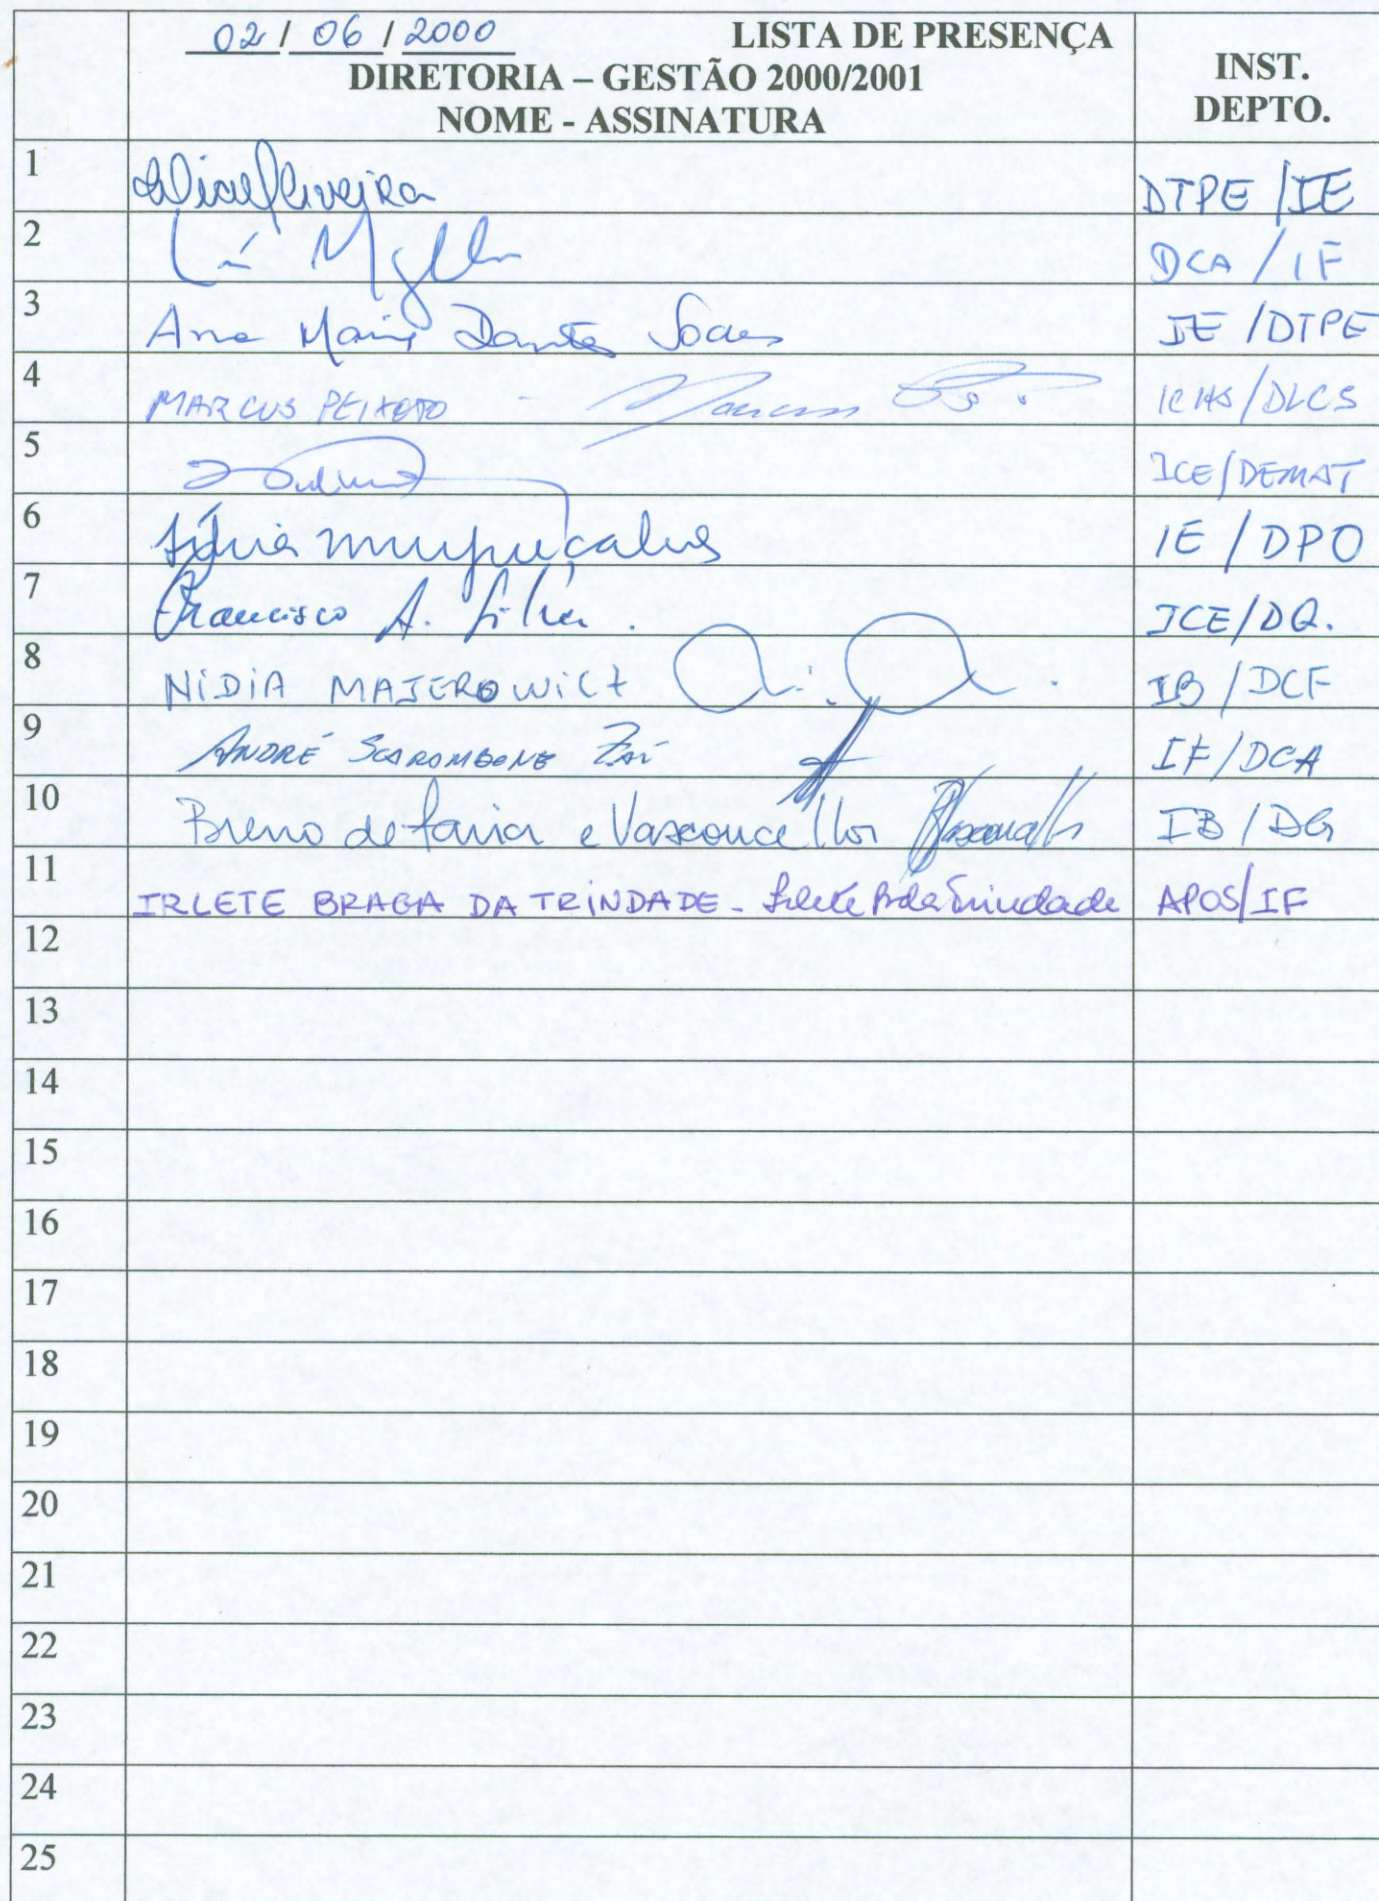 02 / 06 / 2000 LISTA DE PRESENÇA
DIRETORIA – GESTÃO 2000/2001
NOME - ASSINATURA
INST.
DEPTO.
1 DTPE / IE
2 DCA / IF
3 Ana Maria Dantas Soares IE / DTPE
4 MARCUS PEIXOTO - ICHS/DLCS
5 ICE/DEMAT
6 IE / DPO
7 Francisco A. Silva. ICE/DQ.
8 NÍDIA MAJEROWICZ IB / DCF
9 ANDRÉ SCAROMBONE ZAÚ IF/DCA
10 Breno de Faria e Vasconcellos IB / DG
11 IRLETE BRAGA DA TRINDADE - Irlete B da Trindade APOS/IF
12
13
14
15
16
17
18
19
20
21
22
23
24
25